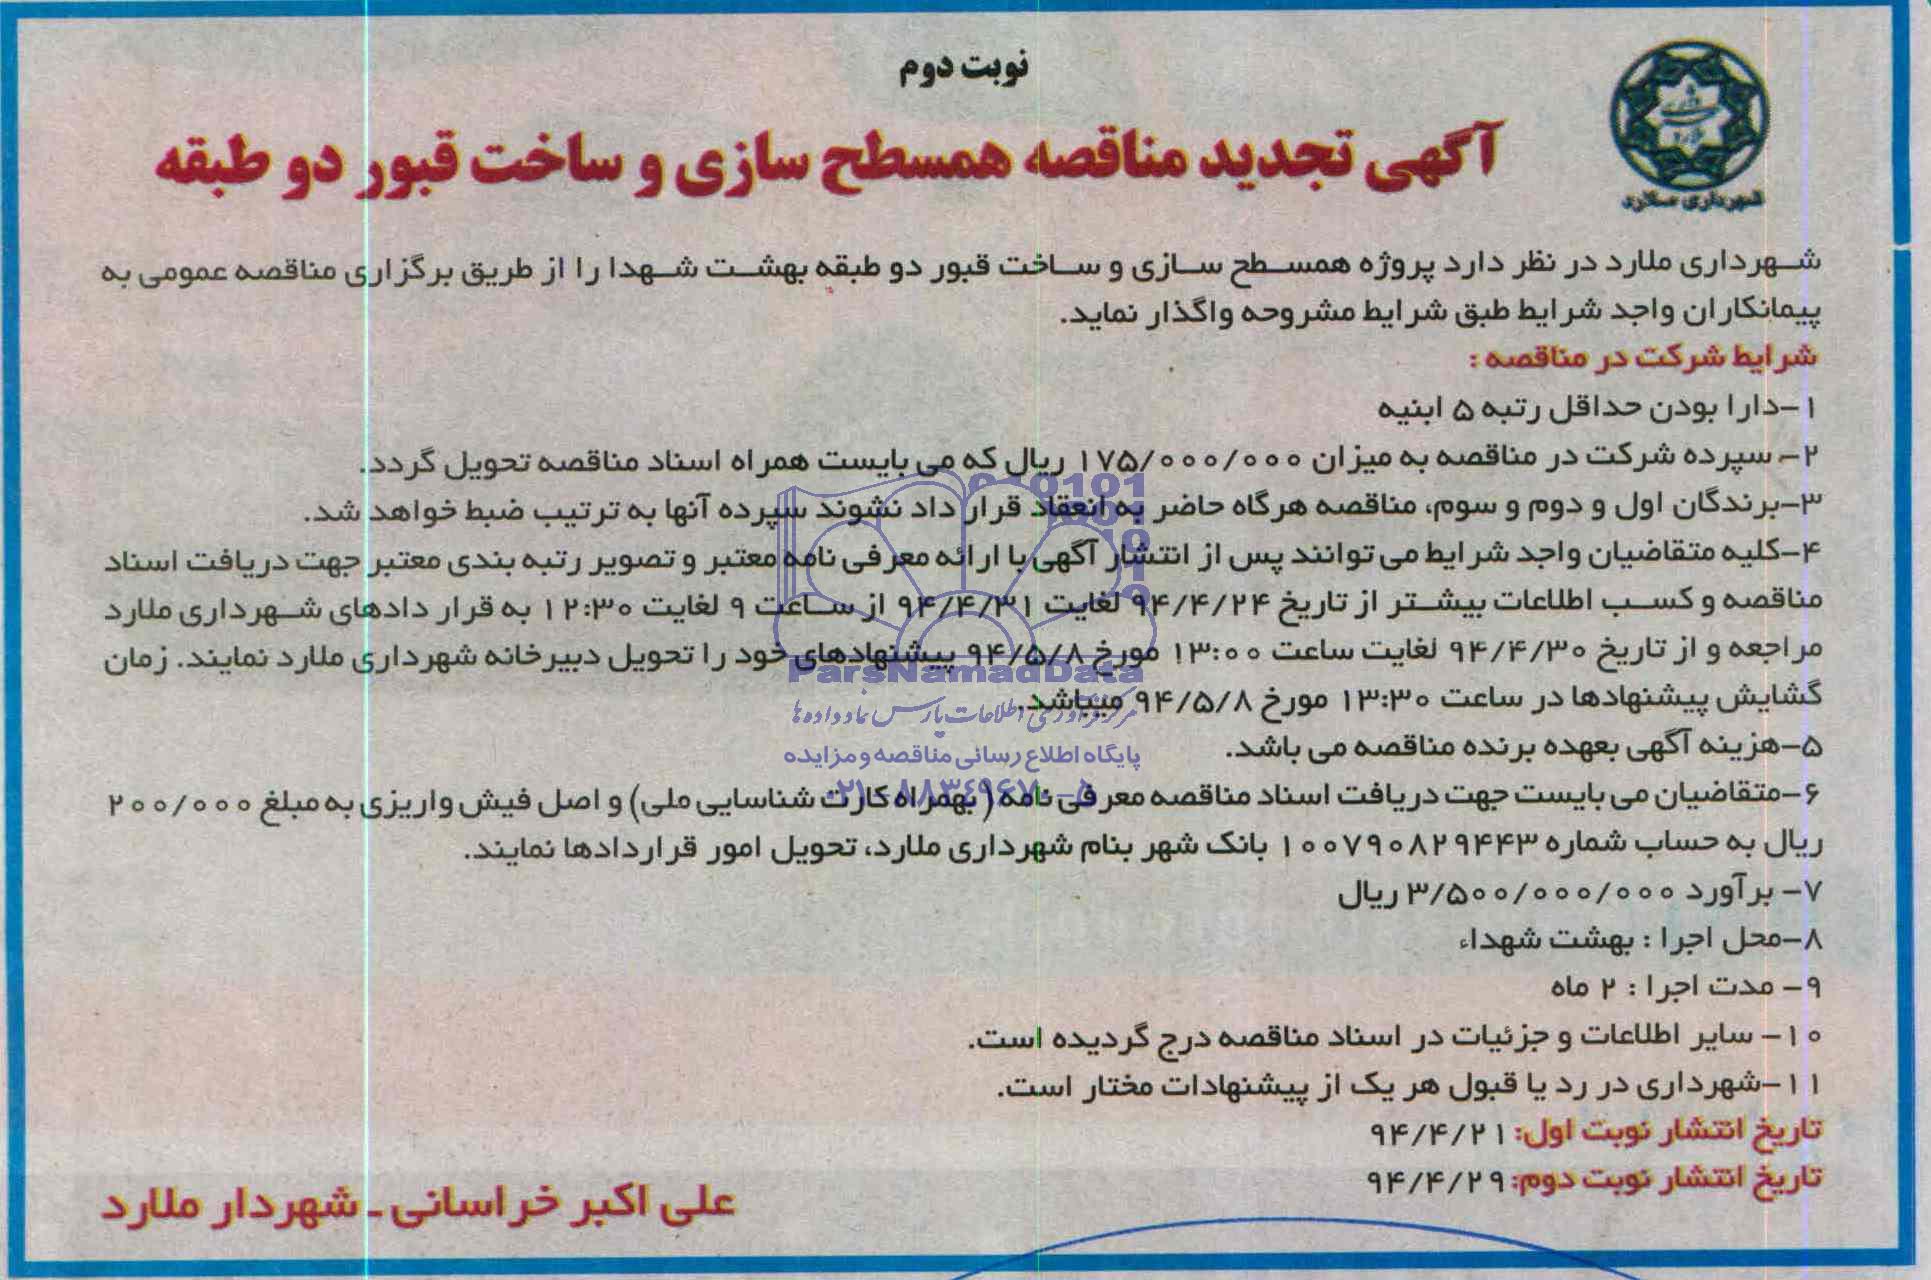 نوبت دوم
آگهی تجدید مناقصه همسطح سازی و ساخت قبور دو طبقه
شهرداری ملارد
شهرداری ملارد در نظر دارد پروژه همسطح سازی و ساخت قبور دو طبقه بهشت شهدا را از طریق برگزاری مناقصه عمومی به
پیمانکاران واجد شرایط طبق شرایط مشروحه واگذار نماید.
شرایط شرکت در مناقصه :
۱-دارا بودن حداقل رتبه ۵ ابنیه
۲- سپرده شرکت در مناقصه به میزان ۱۷۵/۰۰۰/۰۰۰ ریال که می بایست همراه اسناد مناقصه تحویل گردد.
۳-برندگان اول و دوم و سوم، مناقصه هرگاه حاضر به انعقاد قرار داد نشوند سپرده آنها به ترتیب ضبط خواهد شد.
۴-کلیه متقاضیان واجد شرایط می توانند پس از انتشار آگهی با ارائه معرفی نامه معتبر و تصویر رتبه بندی معتبر جهت دریافت اسناد
مناقصه و کسب اطلاعات بیشتر از تاریخ ۹۴/۴/۲۴ لغایت ۹۴/۴/۳۱ از ساعت ۹ لغایت ۱۲:۳۰ به قرار دادهای شهرداری ملارد
مراجعه و از تاریخ ۹۴/۴/۳۰ لغایت ساعت ۱۳:۰۰ مورخ ۹۴/۵/۸ پیشنهادهای خود را تحویل دبیرخانه شهرداری ملارد نمایند. زمان
گشایش پیشنهادها در ساعت ۱۳:۳۰ مورخ ۹۴/۵/۸ میباشد.
۵-هزینه آگهی بعهده برنده مناقصه می باشد.
۶-متقاضیان می بایست جهت دریافت اسناد مناقصه معرفی نامه ( بهمراه کارت شناسایی ملی) و اصل فیش واریزی به مبلغ ۲۰۰/۰۰۰
ریال به حساب شماره ۱۰۰۷۹۰۸۲۹۴۴۳ بانک شهر بنام شهرداری ملارد، تحویل امور قراردادها نمایند.
۷- برآورد ۳/۵۰۰/۰۰۰/۰۰۰ ریال
۸-محل اجرا : بهشت شهداء
۹- مدت اجرا : ۲ ماه
۱۰- سایر اطلاعات و جزئیات در اسناد مناقصه درج گردیده است.
۱۱-شهرداری در رد یا قبول هر یک از پیشنهادات مختار است.
تاریخ انتشار نوبت اول: ۹۴/۴/۲۱
تاریخ انتشار نوبت دوم: ۹۴/۴/۲۹
علی اکبر خراسانی ـ شهردار ملارد
ParsNamadData
مرکز فرآوری اطلاعات پارس نماد داده ها
پایگاه اطلاع رسانی مناقصه و مزایده
۰۲۱-۸۸۳۴۹۶۷۰-۵